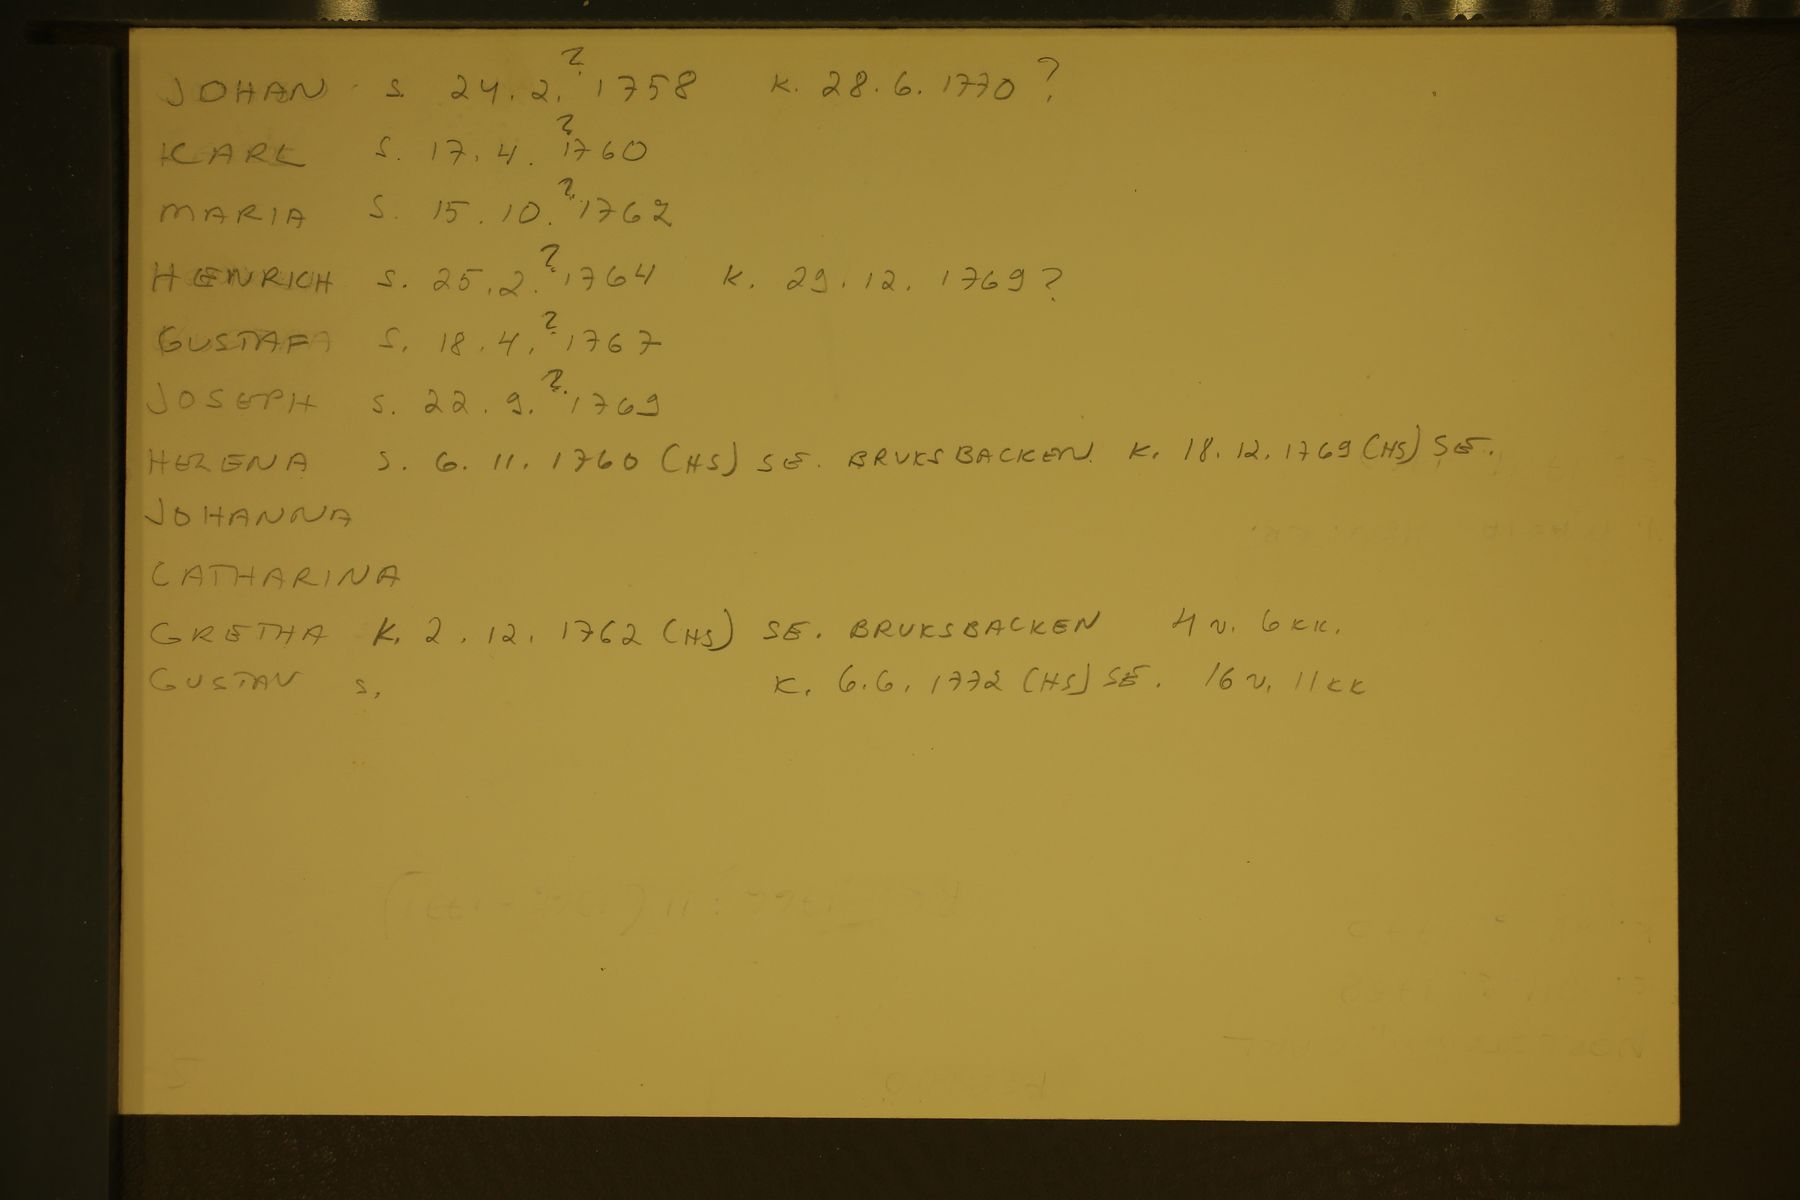 JOHAN S. 24.2.? 1758 K. 28.6.1770?
KARL S. 17.4.? 1760
MARIA S. 15.10.? 1762
HENRICH S. 25.2.? 1764 K. 29.12.1769?
GUSTAFA S. 18.4.? 1767
JOSEPH S. 22.9.? 1769
HELENA S. 6.11.1760 (HS) SE. BRUKSBACKEN K. 18.12.1769 (HS) SE.
JOHANNA
CATHARINA
GRETHA K. 2.12.1762 (HS) SE. BRUKSBACKEN 4 v. 6 KK.
GUSTAV S. K. 6.6.1772 (HS) SE. 16 v. 11 KK